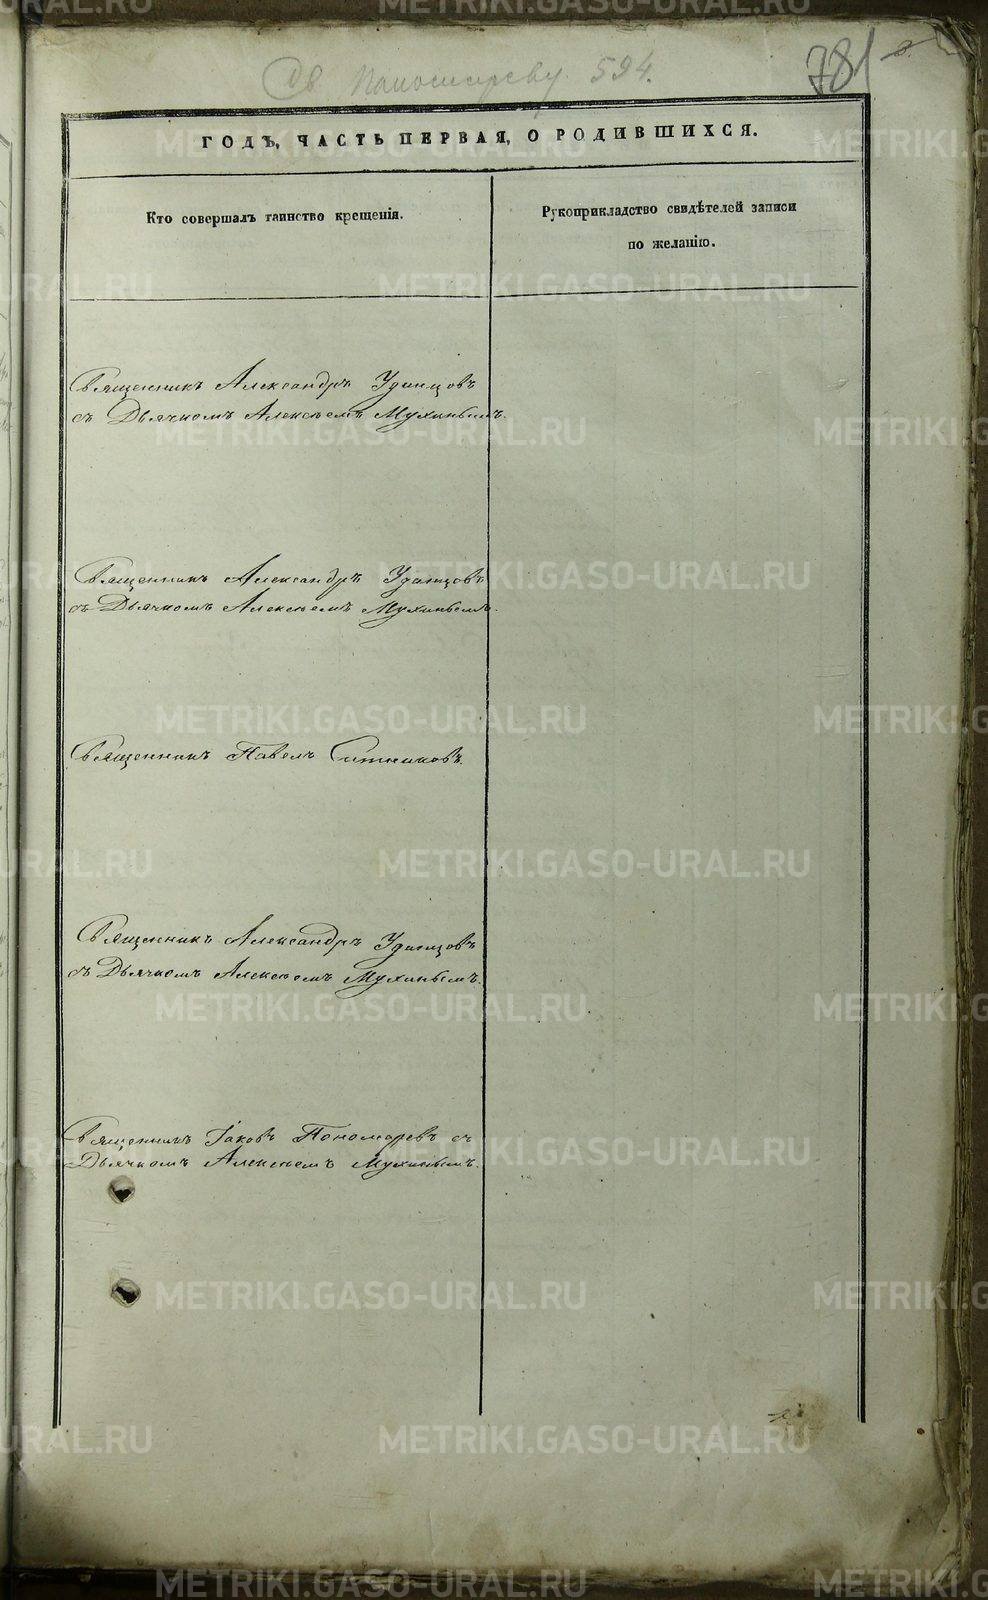 781
594.
ГОДЪ, ЧАСТЬ ПЕРВАЯ, О РОДИВШИХСЯ.
Кто совершалъ таинство крещенія.
Рукоприкладство свидѣтелей записи
по желанію.
Священникъ Александръ Удинцовъ
съ Дьячкомъ Алексѣемъ Мухинымъ.
Священникъ Александръ Удинцовъ
съ Дьячкомъ Алексѣемъ Мухинымъ.
Священникъ Павелъ Ситниковъ.
Священникъ Александръ Удинцовъ
съ Дьячкомъ Алексѣемъ Мухинымъ.
Священникъ Іаковъ Пономаревъ съ
Дьячкомъ Алексѣемъ Мухинымъ.
METRIKI.GASO-URAL.RU